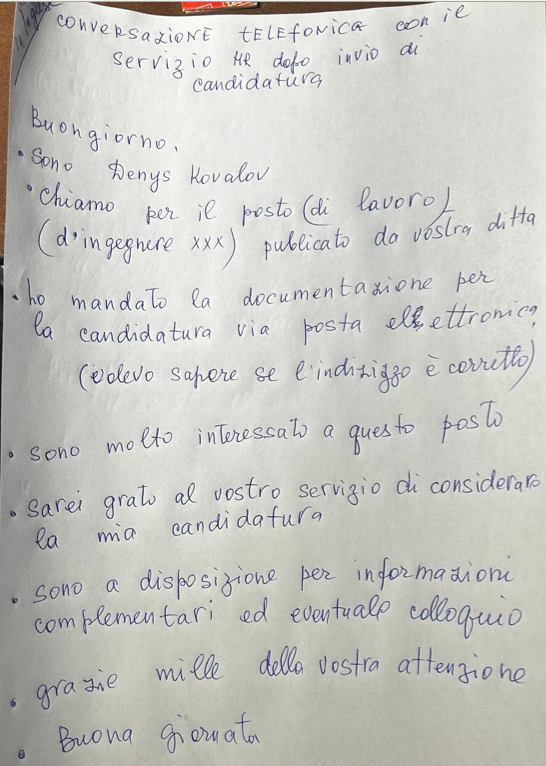 in inglese
CONVERSAZIONE TELEFONICA con il
servizio HR dopo invio di
candidatura
Buongiorno,
• Sono Denys Kovalov
• Chiamo per il posto (di lavoro)
(d'ingegnere xxx) publicato da vostra ditta
• ho mandato la documentazione per
la candidatura via posta elettronica
(volevo sapere se l'indizizzo è corretto)
• sono molto interessato a questo posto
• sarei grato al vostro servizio di considerare
la mia candidatura
• sono a disposizione per informazioni
complementari ed eventuale colloquio
• grazie mille della vostra attenzione
• Buona giornata